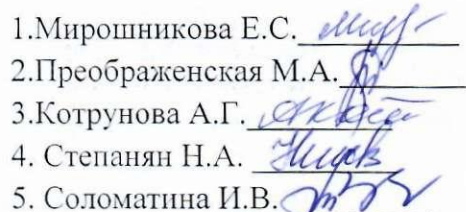 1.Мирошникова Е.С.
2.Преображенская М.А.
3.Котрунова А.Г.
4. Степанян Н.А.
5. Соломатина И.В.